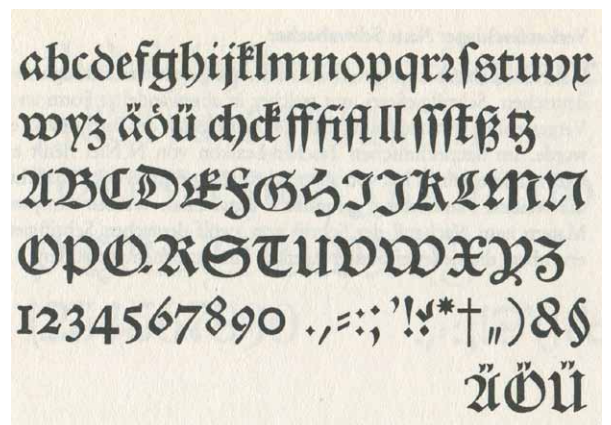 abcdefghijklmnopqrꝛſstuvx
wyz äöü ch ck ff fi fl ll ſſ ſt ß tz
ABCDEFGHIJKLMN
OPQRSTUVWXYZ
1234567890 .,⸗:;'!?*†„)&§
ÄÖÜ